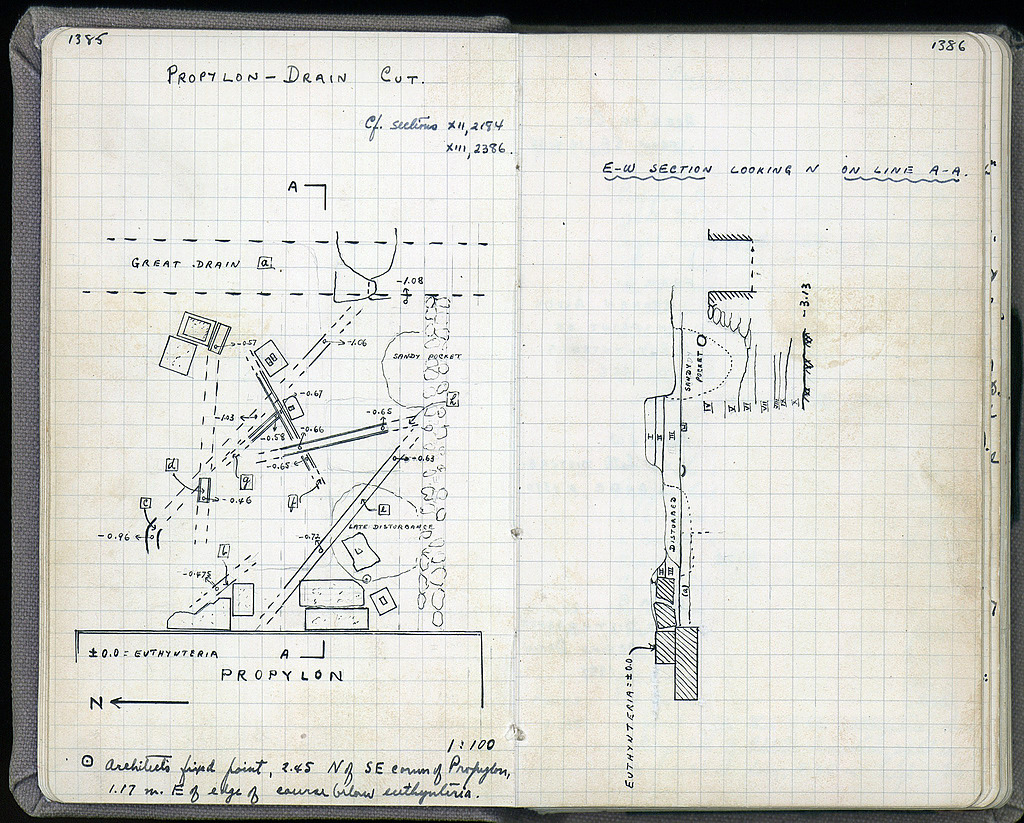 1385
PROPYLON - DRAIN CUT.
Cf. sections XII, 2184
XIII, 2386.
A
GREAT DRAIN a
-1.08
-0.57
-1.06
SANDY POCKET
-0.67
h
-1.03
-0.65
-0.66
-0.58
-0.65
-0.63
d
g
-0.46
f
c
LATE DISTURBANCE
-0.96
-0.72
b
-0.475
±0.0 = EUTHYNTERIA
A
PROPYLON
N
1:100
⊙ Architects fixed point, 2.45 N of SE corner of Propylon,
1.17 m. E of edge of course below euthynteria.
1386
E-W SECTION LOOKING N ON LINE A-A.
-3.13
SANDY POCKET
IV V VI VII VIII IX X
I II III
DISTURBED
II III
(a)
EUTHYNTERIA = ±0.0